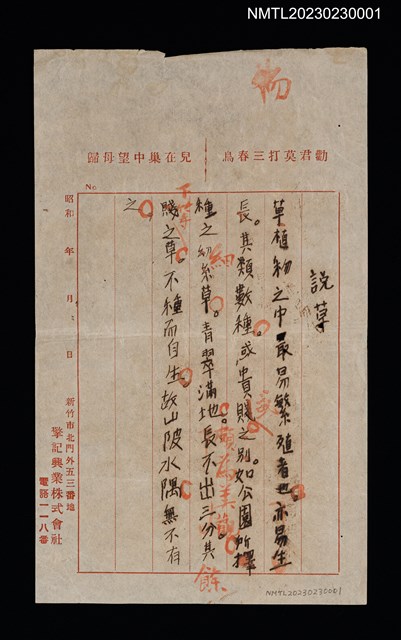 NMTL20230230001
勸君莫打三春鳥
兒在巢中望母歸
No
說草
草植物之中最易繁殖者也亦易生
長。其類數種。或貴賤之別。如公園所擇
種之細草。青翠滿地。長不出三分。其餘
賤之草。不種而自生。故山陂水隅無不有
之
昭和 年 月 日
新竹市北門外五三番地
擎記興業株式會社
電話一一八番
NMTL20230230001